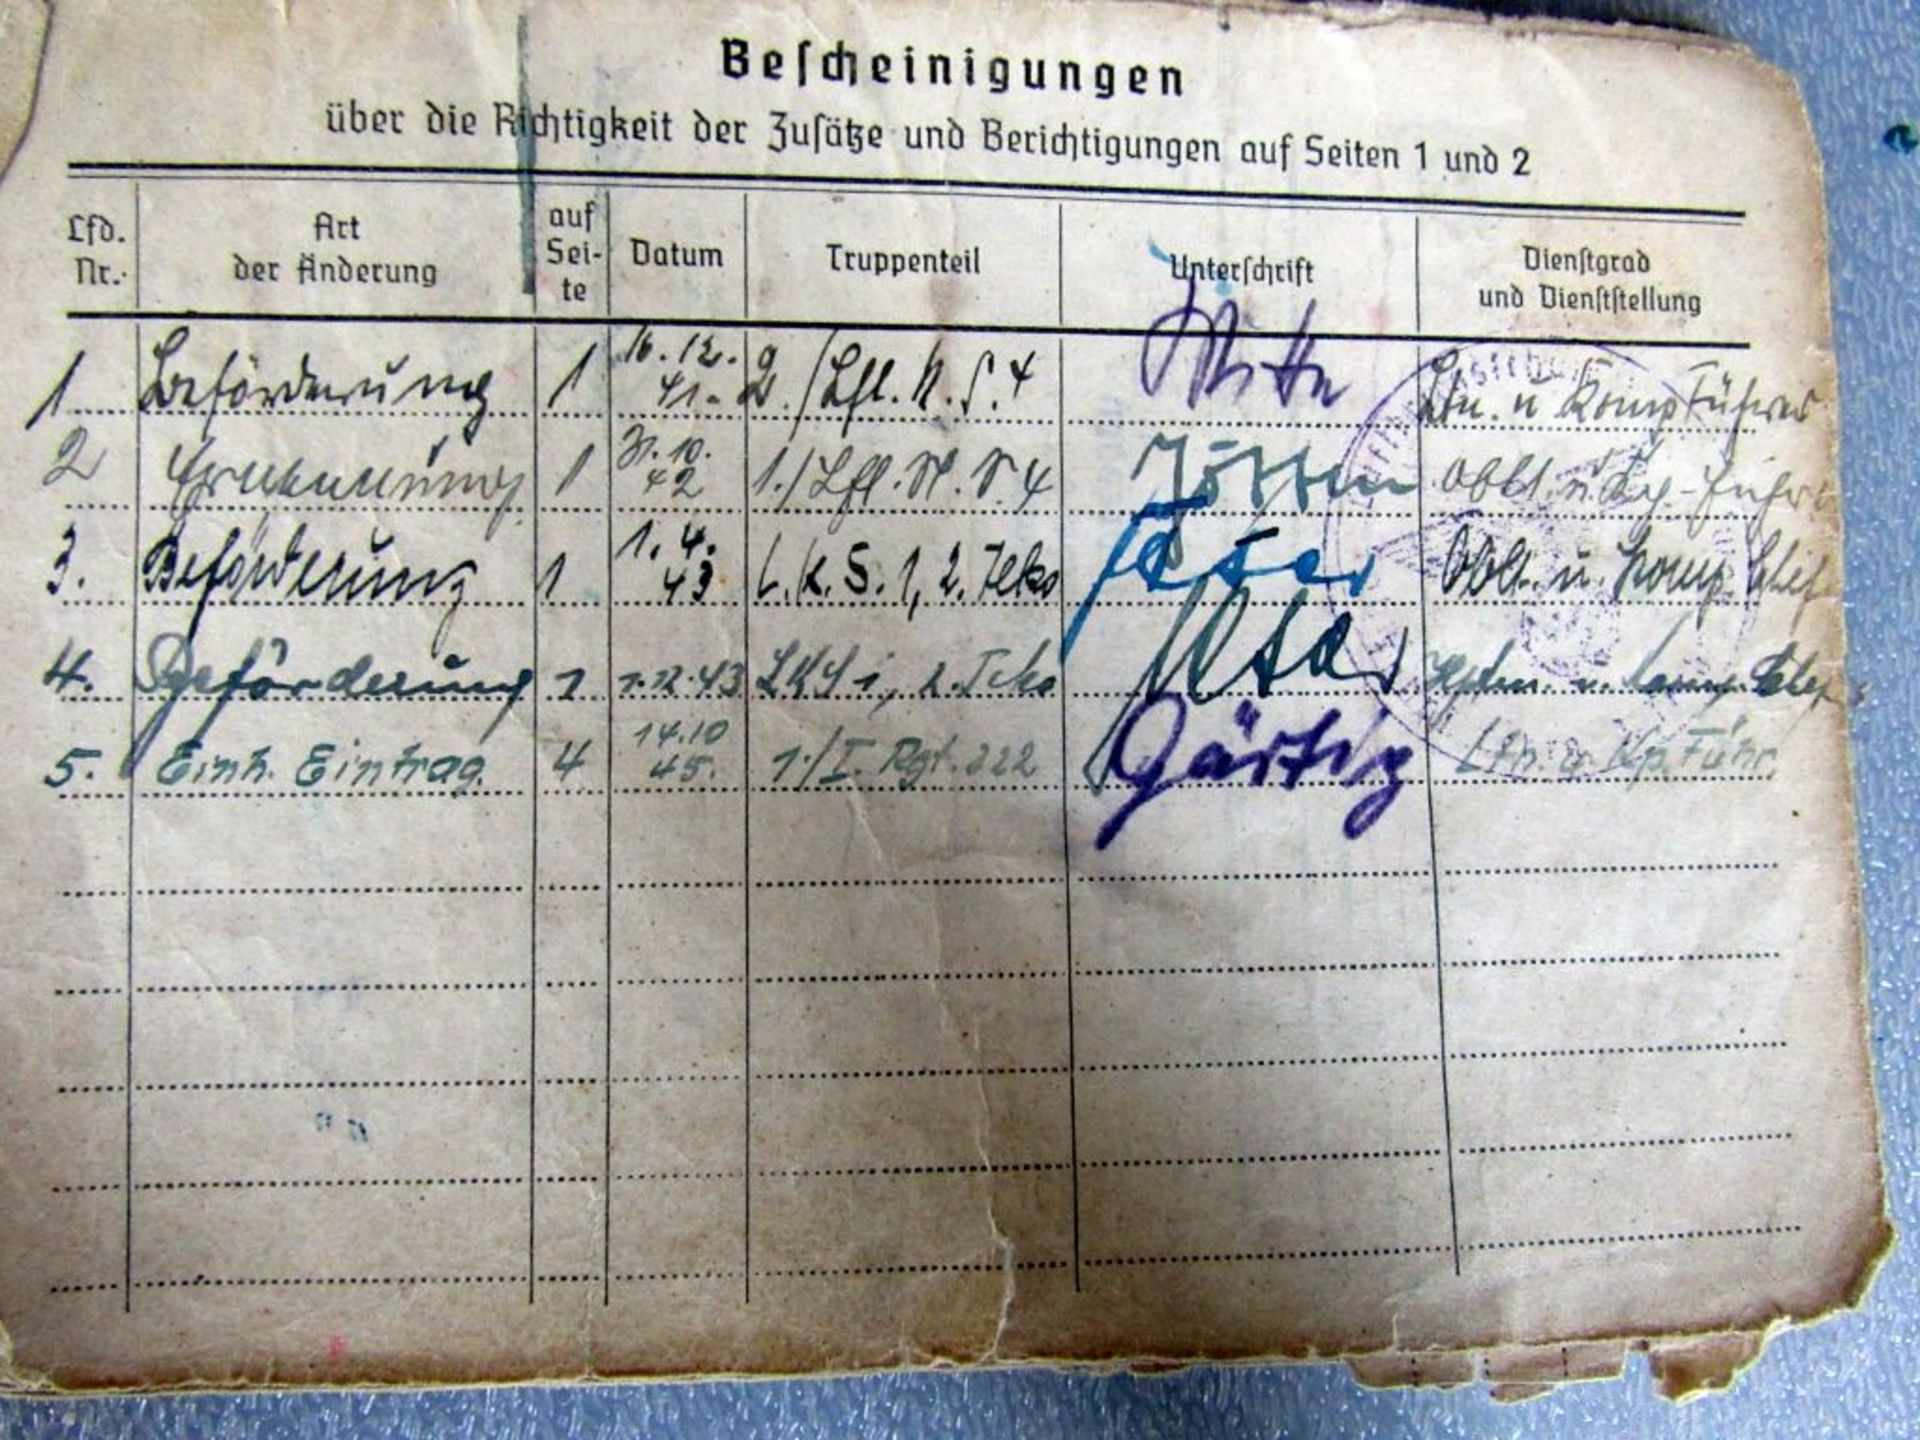 Bescheinigungen
über die Richtigkeit der Zusätze und Berichtigungen auf Seiten 1 und 2
Lfd. Nr. Art der Änderung auf Sei-te Datum Truppenteil Unterschrift Dienstgrad und Dienststellung
1 Beförderung 1 16.12. 41. 2./Lfl.N.S.4 Ltn. u Komp Führer
2 Ernennung 1 31.10. 42 1./Lfl.N.S.4 Oblt. u. Kp.-Führer
3. Beförderung 1 1.4. 43 L.K.S.1, 2. Oblt. u. Komp. Chef
4. Beförderung 1 1.12.43 LKS 1, 2. Hptm. u. Komp. Chef
5. Einh. Eintrag. 4 14.10 45. 1./I. Rgt. 222 Gärtig Ltn. u. Kp. Führ.